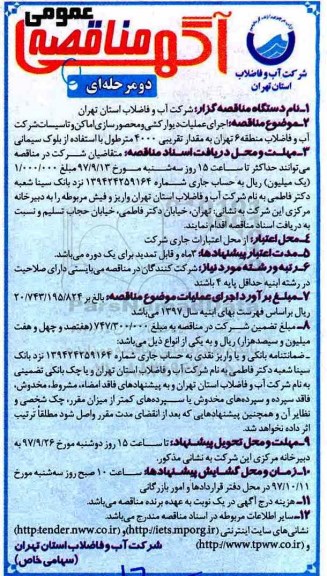 آگهی مناقصه عمومی
دو مرحله‌ای
شرکت آب و فاضلاب
استان تهران
۱ـ نام دستگاه مناقصه گزار: شرکت آب و فاضلاب استان تهران
۲ـ موضوع مناقصه: اجرای عملیات دیوار کشی و محصور سازی اماکن و تاسیسات شرکت
آب و فاضلاب منطقه ۶ تهران به مقدار تقریبی ۴۰۰۰ مترطول با استفاده از بلوک سیمانی
۳ـ مهلت و محل دریافت اسناد مناقصه: متقاضیان شرکت در مناقصه
می‌توانند حداکثر تا ساعت ۱۵ روز سه‌شنبه مورخ ۹۷/۹/۱۳ مبلغ ۱/۰۰۰/۰۰۰
(یک میلیون) ریال به حساب جاری شماره ۱۳۹۴۲۴۲۵۹۱۶۴ نزد بانک سینا شعبه
دکتر فاطمی به نام شرکت آب و فاضلاب استان تهران واریز و فیش مربوطه را به دبیرخانه
مرکزی این شرکت به نشانی: تهران، خیابان دکتر فاطمی، خیابان حجاب تسلیم و نسبت
به دریافت اسناد مناقصه اقدام نمایند.
۴ـ محل اعتبار: از محل اعتبارات جاری شرکت
۵ـ مدت اعتبار پیشنهادها: ۳ماه و قابل تمدید برای یک دوره می‌باشد.
۶ـ رتبه و رشته مورد نیاز: شرکت کنندگان در مناقصه می‌بایستی دارای صلاحیت
در رشته ابنیه حداقل پایه ۴ باشند
۷ـ مبلغ برآورد اجرای عملیات موضوع مناقصه: بالغ بر ۲۰/۷۴۳/۱۹۵/۸۲۴
ریال براساس فهرست بهای ابنیه سال ۱۳۹۷ می‌باشد
۸ـ مبلغ تضمین شرکت در مناقصه به مبلغ ۷۴۷/۳۰۰/۰۰۰ (هفتصد و چهل و هفت
میلیون و سیصدهزار) ریال و به یکی از انواع ذیل می‌باشد:
ـ ضمانتنامه بانکی و یا واریز نقدی به حساب جاری شماره ۱۳۹۴۲۴۲۵۹۱۶۴ نزد بانک
سینا شعبه دکتر فاطمی به نام شرکت آب و فاضلاب استان تهران و یا چک بانکی تضمینی
به نام شرکت آب و فاضلاب استان تهران و به پیشنهادهای فاقد امضاء، مشروط، مخدوش،
فاقد سپرده و سپرده‌های مخدوش یا سپرده‌های کمتر از میزان مقرر، چک شخصی و
نظایر آن و همچنین پیشنهادهایی که بعد از انقضای مدت مقرر واصل شود مطلقاً ترتیب
اثر داده نخواهد شد.
۹ـ مهلت و محل تحویل پیشنهاد: تا ساعت ۱۵ روز دوشنبه مورخ ۹۷/۹/۲۶ به
دبیرخانه مرکزی این شرکت به نشانی مذکور.
۱۰ـ زمان و محل گشایش پیشنهادها: ساعت ۱۰ صبح روز سه‌شنبه مورخ
۹۷/۱۰/۱۱ در محل دفتر قراردادها و امور بازرگانی
۱۱ـ هزینه درج آگهی در یک نوبت به عهده برنده مناقصه می‌باشد.
۱۲ـ سایر اطلاعات مربوطه در اسناد مناقصه مندرج می‌باشد.
نشانی‌های سایت اینترنتی (http://iets.mporg.ir) و (http:tender.nww.co.ir)
و (http://www.tpww.co.ir)
شرکت آب و فاضلاب استان تهران
(سهامی خاص)